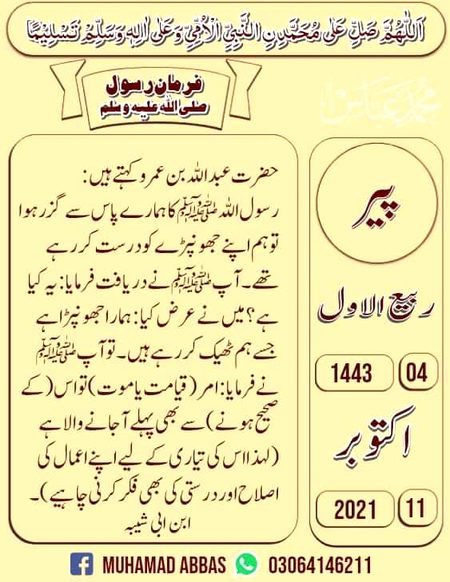 اَللّٰهُمَّ صَلِّ عَلٰی مُحَمَّدِنِ النَّبِیِّ الْاُمِّیِّ وَعَلٰی اٰلِهٖ وَسَلِّمْ تَسْلِیْمًا
فرمان رسول
صلی اللہ علیہ وسلم
محمد عباس
حضرت عبداللہ بن عمرو کہتے ہیں:
رسول اللہ ﷺ کا ہمارے پاس سے گزر ہوا
تو ہم اپنے جھونپڑے کو درست کر رہے
تھے۔ آپ ﷺ نے دریافت فرمایا: یہ کیا
ہے؟ میں نے عرض کیا: ہمارا جھونپڑا ہے
جسے ہم ٹھیک کر رہے ہیں۔ تو آپ ﷺ
نے فرمایا: امر (قیامت یا موت) تو اس (کے
صحیح ہونے) سے بھی پہلے آ جانے والا ہے
(لہذا اس کی تیاری کے لیے اپنے اعمال کی
اصلاح اور درستی کی بھی فکر کرنی چاہیے)۔
ابن ابی شیبہ
پیر
ربیع الاول
1443 04
اکتوبر
2021 11
MUHAMAD ABBAS 03064146211